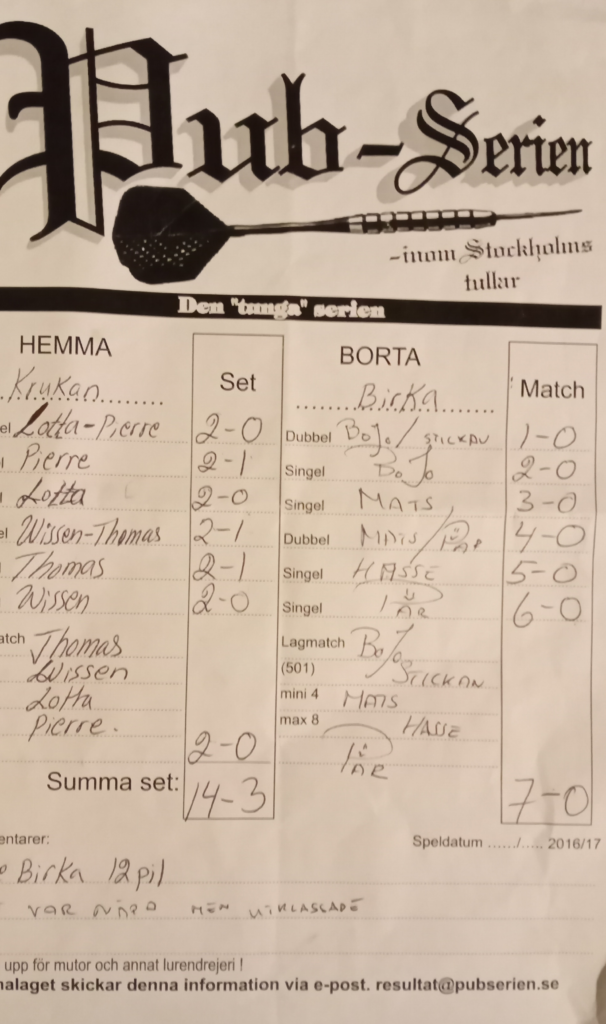 Pub-Serien
-inom Stockholms
tullar
Den "tunga" serien
HEMMA Set BORTA Match
Krukan Birka
el Lotta-Pierre 2-0 Dubbel BoJo/STICKAN 1-0
Pierre 2-1 Singel BoJo 2-0
Lotta 2-0 Singel MATS 3-0
el Wissen-Thomas 2-1 Dubbel MATS/PÄR 4-0
Thomas 2-1 Singel HASSE 5-0
Wissen 2-0 Singel PÄR 6-0
atch Thomas Lagmatch BoJo
Wissen (501) STICKAN
Lotta mini 4 MATS
Pierre. max 8 HASSE
2-0 PÄR
Summa set: 14-3 7-0
entarer: Speldatum ....../..... 2016/17
Birka 12 pil
VAR NÄRA MEN UTKLASSADE
upp för mutor och annat lurendrejeri !
nalaget skickar denna information via e-post. resultat@pubserien.se